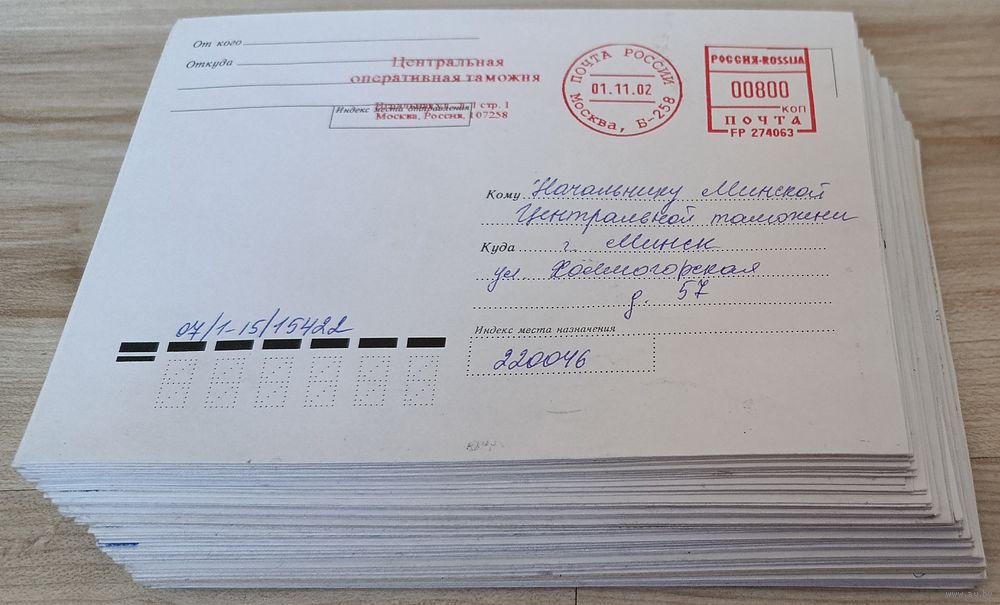 От кого
Откуда
Центральная
оперативная таможня
стр. 1
Москва, Россия, 107258
Индекс места отправления
ПОЧТА РОССИИ
01.11.02
Москва, Б-258
РОССИЯ-ROSSIJA
00800
КОП
ПОЧТА
FP 274063
Кому Начальнику Минской
Центральной таможени
Куда г. Минск
ул. Холмогорская
д. 57
Индекс места назначения
220046
07/1-15/15422
www.ay.by